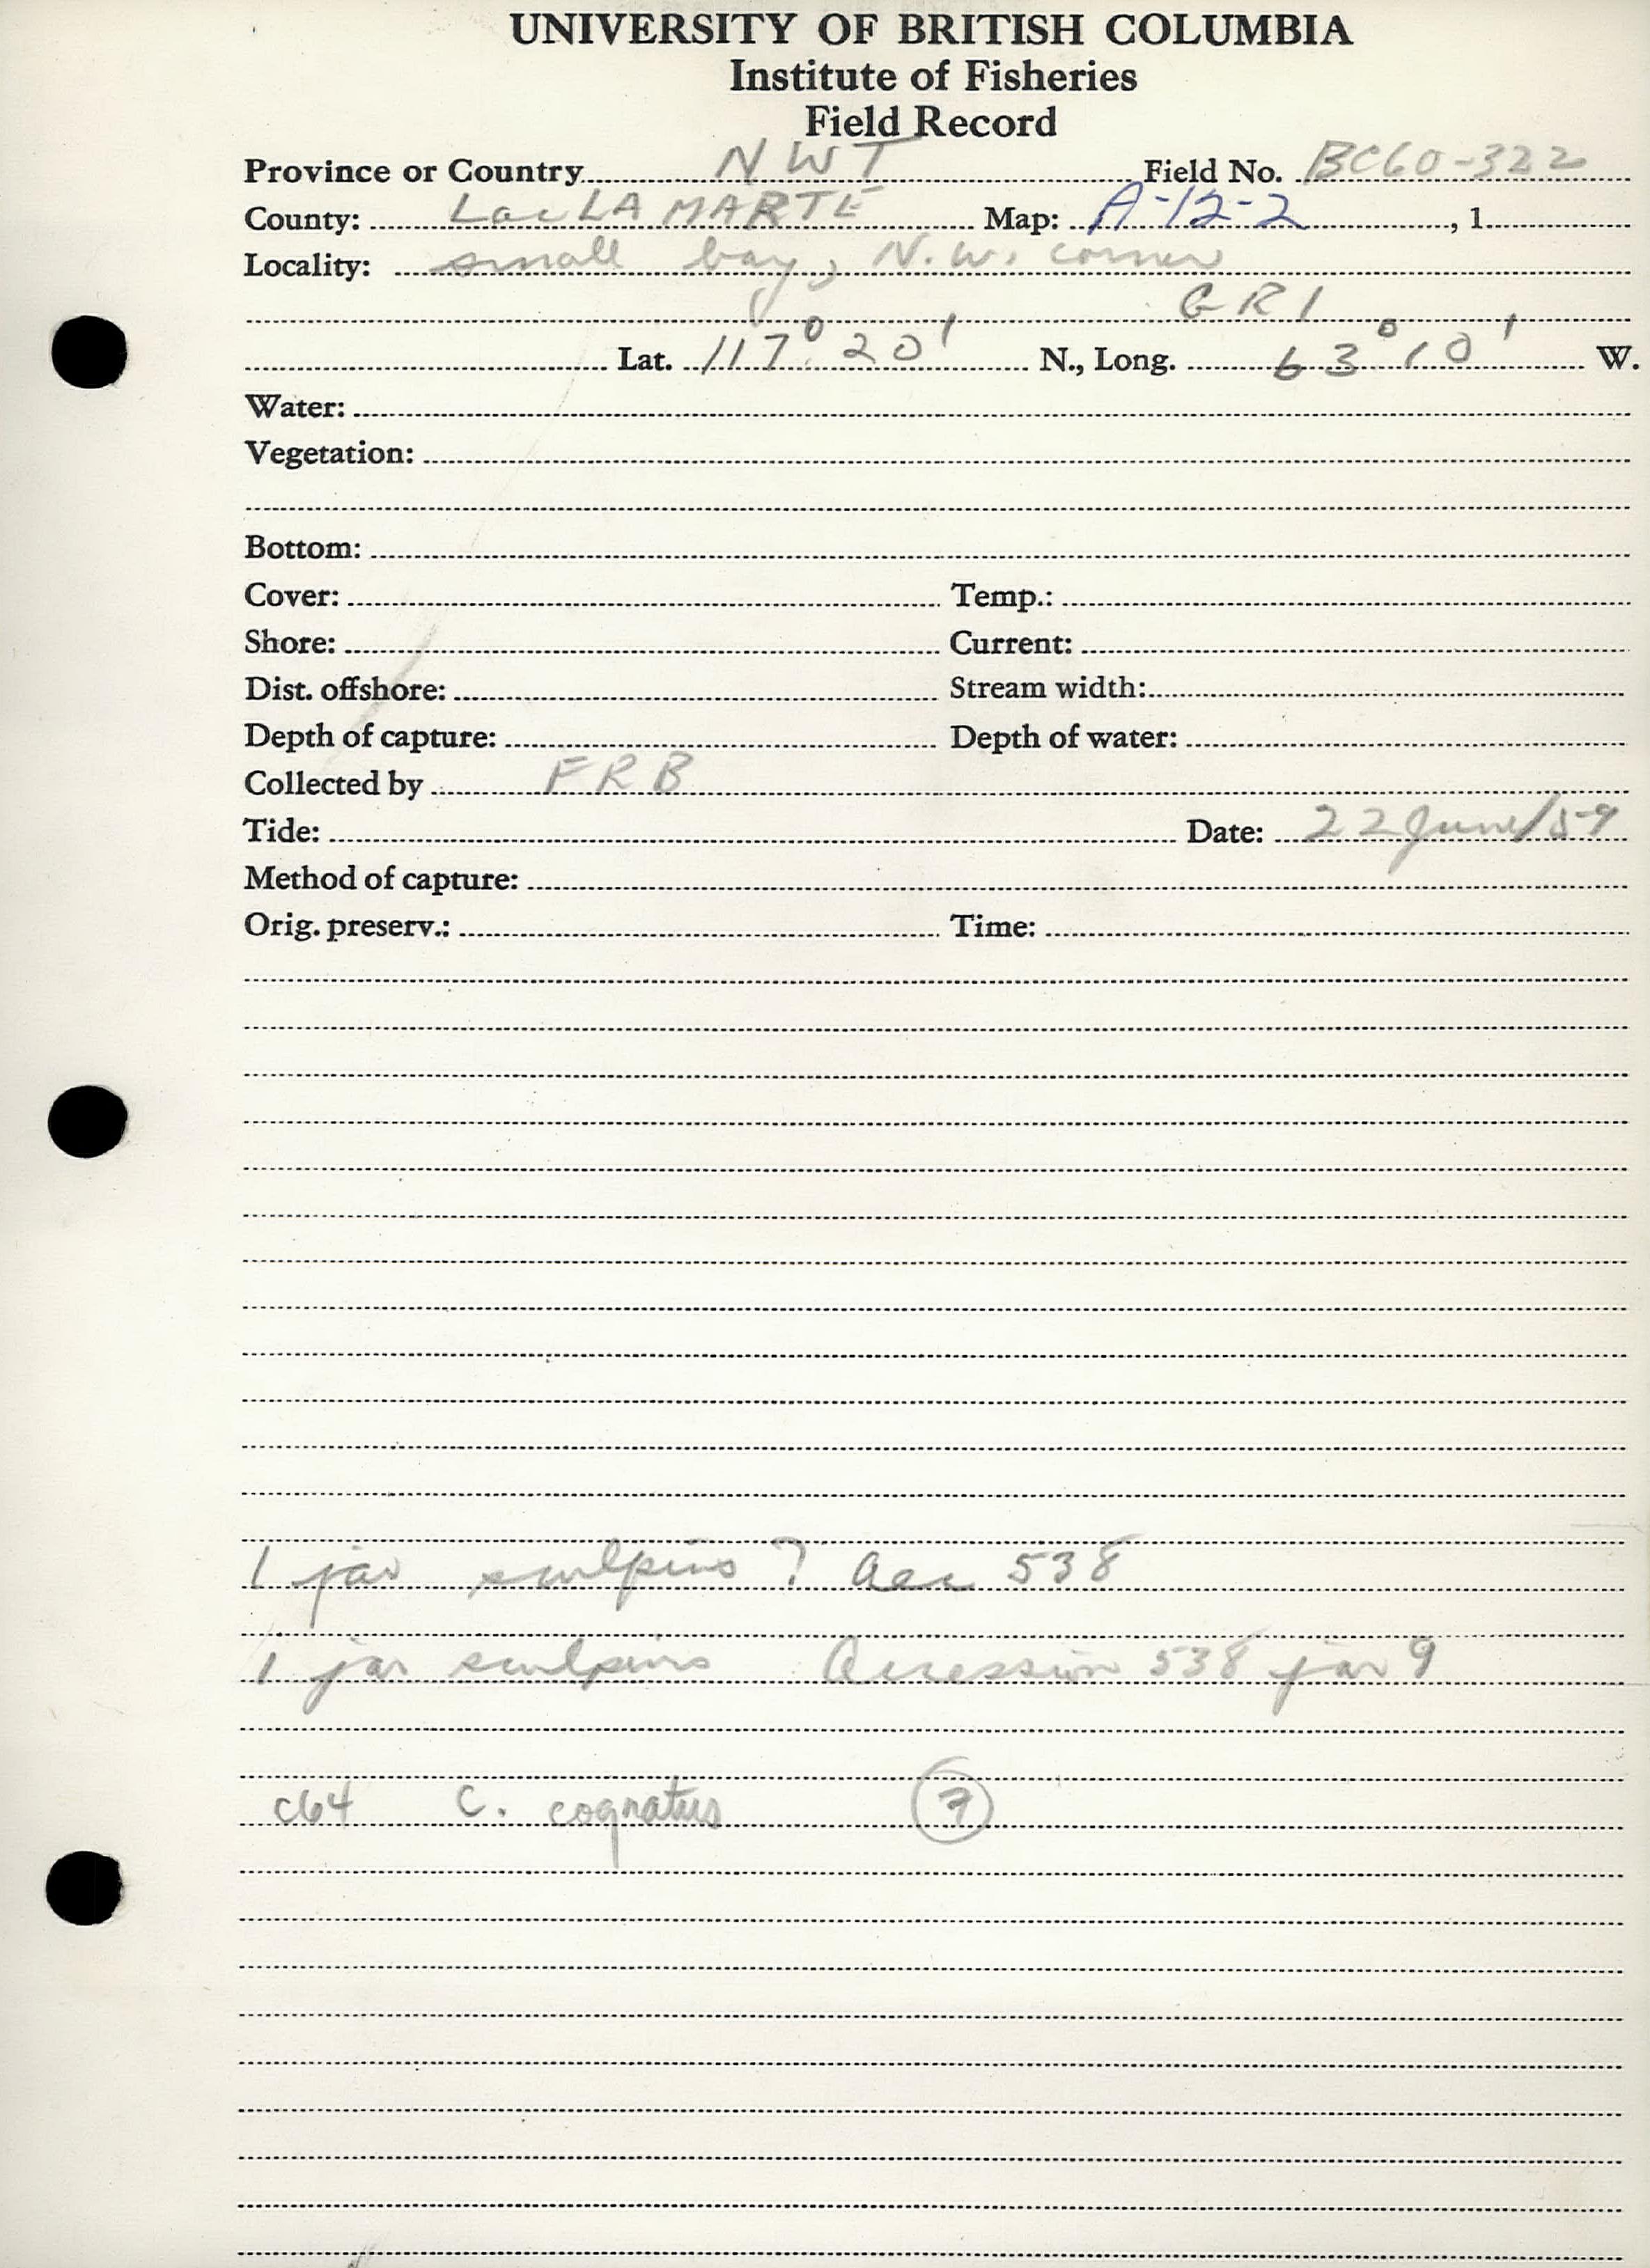 UNIVERSITY OF BRITISH COLUMBIA
Institute of Fisheries
Field Record
Province or Country NWT Field No. BC60-322
County: Lac LA MARTE Map: A-12-2, 1
Locality: small bay, N.W. corner
GR1
Lat. 117° 20' N., Long. 63° 10' W.
Water:
Vegetation:
Bottom:
Cover: Temp.:
Shore: Current:
Dist. offshore: Stream width:
Depth of capture: Depth of water:
Collected by FRB
Tide: Date: 22 June/59
Method of capture:
Orig. preserv.: Time:
1 jar sculpins ? Acc 538
1 jar sculpins Accession 538 jar 9
C64 C. cognatus 7